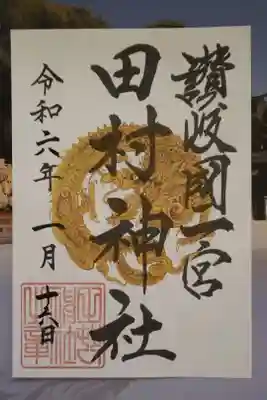 讃岐國一宮
田村神社
令和六年 一月 十六日